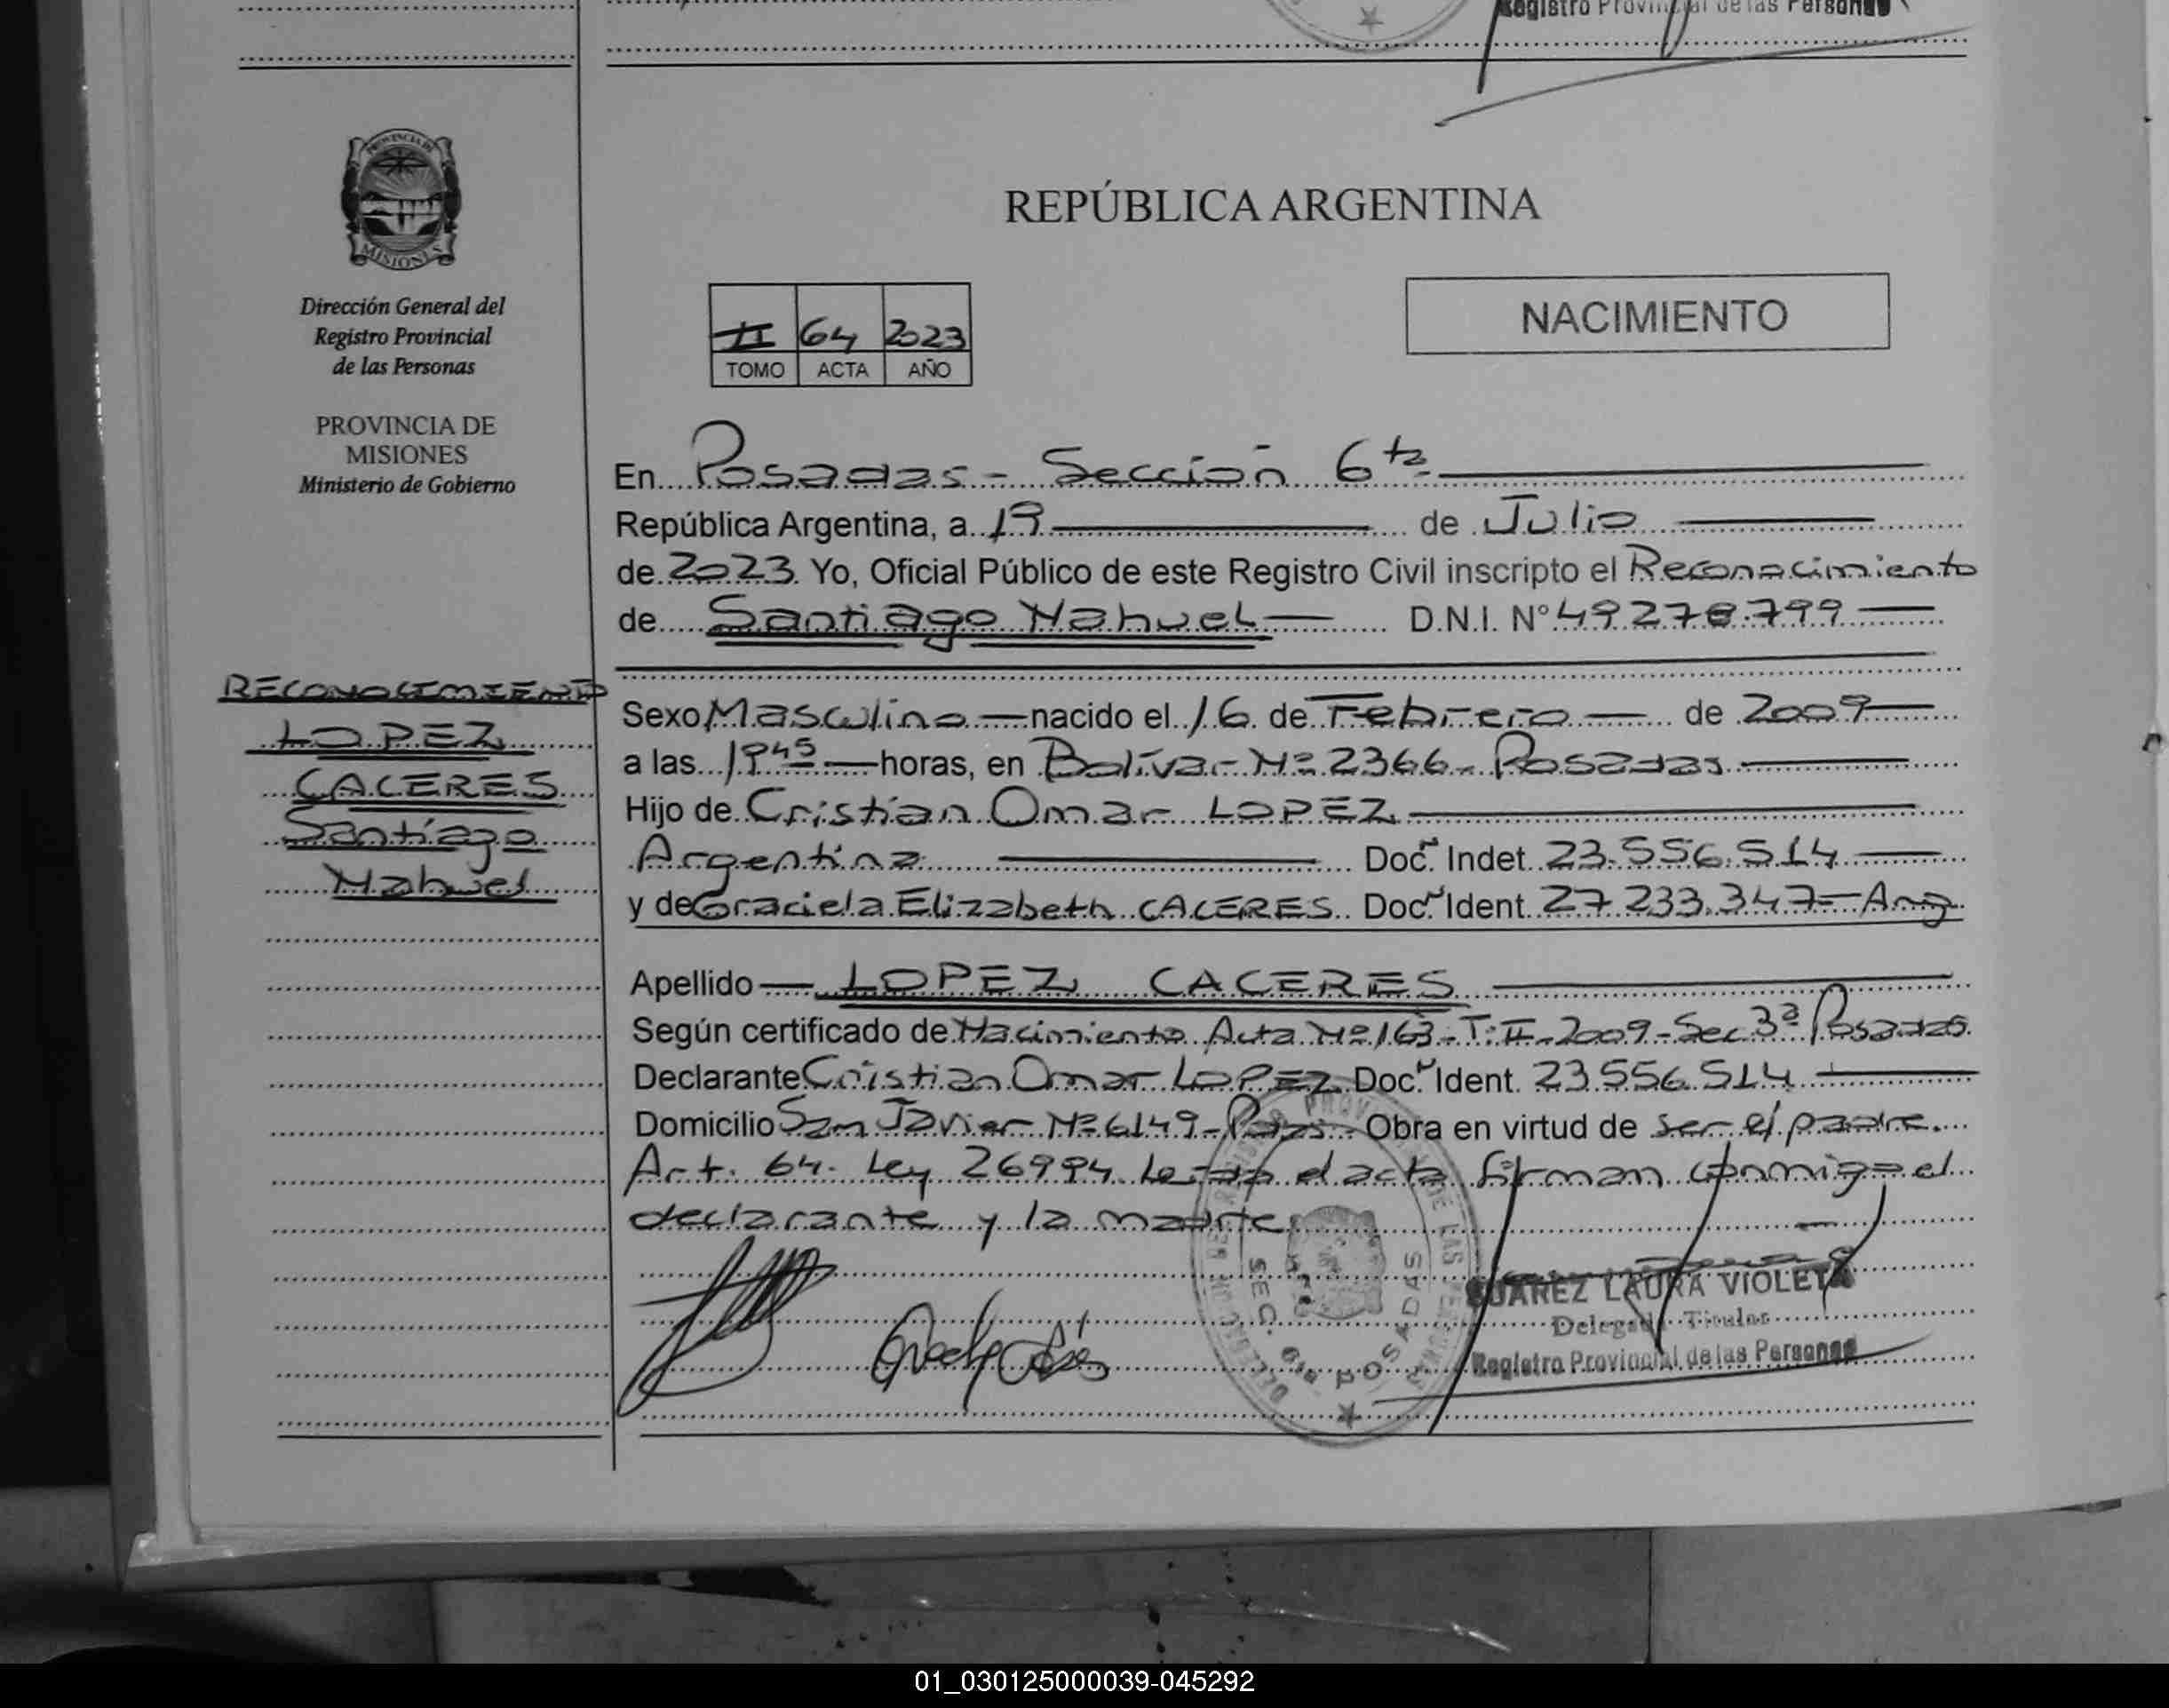 Registro Provincial de las Personas
PROVINCIA DE
MISIONES
Dirección General del
Registro Provincial
de las Personas
PROVINCIA DE
MISIONES
Ministerio de Gobierno
RECONOCIMIENTO
LOPEZ
CACERES
Santiago
Nahuel
REPÚBLICA ARGENTINA
II 64 2023
TOMO ACTA AÑO
NACIMIENTO
En Posadas - Sección 6ta
República Argentina, a 19 de Julio
de 2023 Yo, Oficial Público de este Registro Civil inscripto el Reconocimiento
de Santiago Nahuel D.N.I. N° 49278.799
Sexo Masculino nacido el 16 de Febrero de 2009
a las 1945 horas, en Bolívar Nº 2366 - Posadas
Hijo de Cristian Omar LOPEZ
Argentina Doc. Indet. 23.556.514
y de Graciela Elizabeth CACERES Doc. Ident. 27 233.347 - Arg
Apellido LOPEZ CACERES
Según certificado de Nacimiento Acta Nº 163 - T: II - 2009 - Sec 3ª Posadas
Declarante Cristian Omar LOPEZ Doc. Ident. 23.556.514
Domicilio San Javier Nº 6149 - Obra en virtud de ser el padre.
Art. 64. Ley 26994. Leida el acta firman conmigo el
declarante y la madre
SUAREZ LAURA VIOLETA
Delegada Titular
Registro Provincial de las Personas
SEC. 6ta POSADAS
01_030125000039-045292